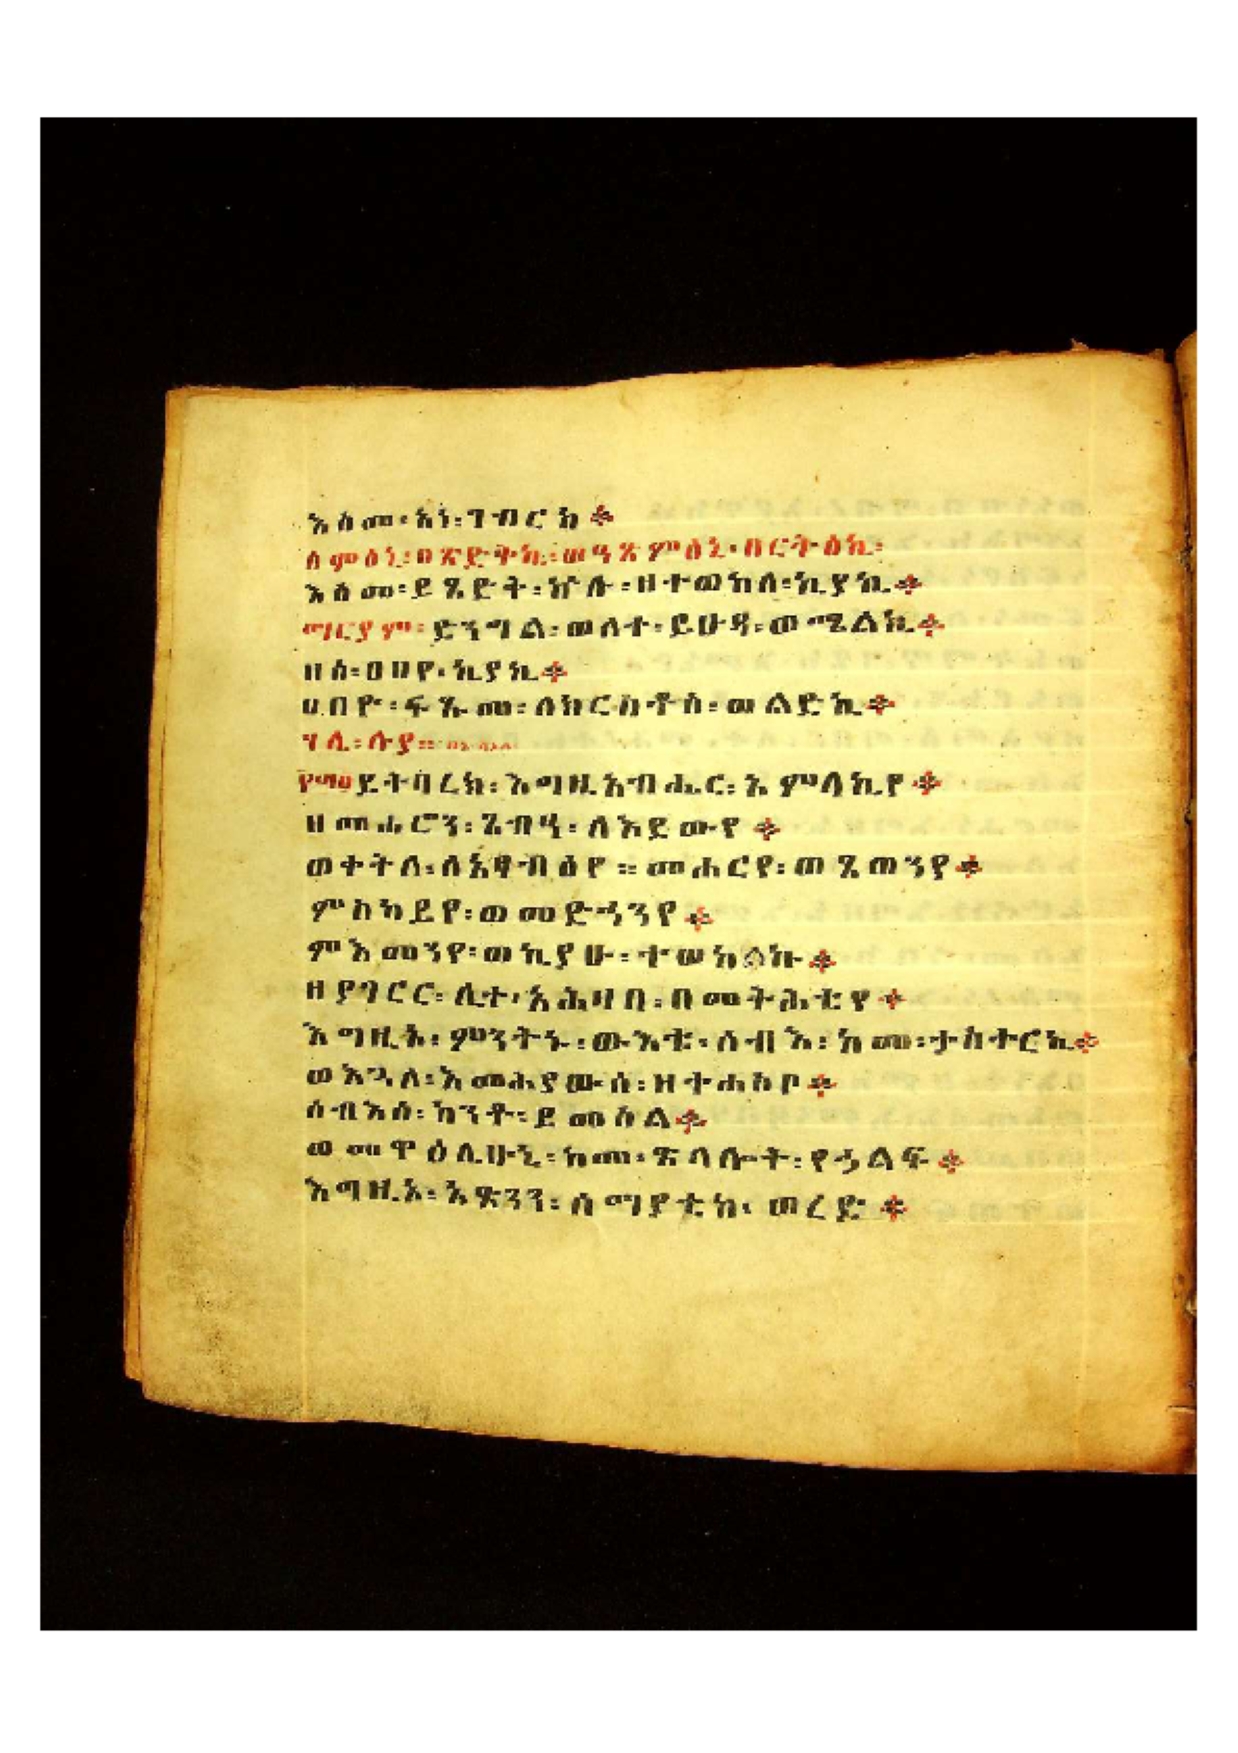 እስመ፡ አነ፡ ገብርከ ።
ስምዕኒ፡ በጽድቅኪ፡ ወዓጽምዕኒ፡ በርትዕኪ፡
እስመ፡ ይጼድቅ፡ ኵሉ፡ ዘተወከለ፡ ኪያኪ ።
ማርያም፡ ድንግል፡ ወለተ፡ ይሁዳ፡ ወሜልኪ ።
ዘሰ፡ ዐበየ፡ ኪያኪ ።
ሀበዮ፡ ፍጹመ፡ ለክርስቶስ፡ ወልድኪ ።
ሃሌ፡ ሉያ ።
፻፵፫ ይትባረክ፡ እግዚአብሔር፡ አምላኪየ ።
ዘመሐሮን፡ ጸብዓ፡ ለእደውየ ።
ወቀትለ፡ ለአጻብዕየ ። መሐርየ፡ ወጸወንየ ።
ምስካይየ፡ ወመድኃንየ ።
ምእመንየ፡ ወኪያሁ፡ ተወከልኩ ።
ዘያገርር፡ ሊተ፡ አሕዛበ፡ በመትሕቴየ ።
እግዚኦ፡ ምንትኑ፡ ውእቱ፡ ሰብእ፡ ከመ፡ ታስተርኢ ።
ወእጓለ፡ እመሕያው ሰ፡ ዘተሐስቦ ።
ሰብእሰ፡ ከንቶ፡ ይመስል ።
ወመዋዕሊሁኒ፡ ከመ፡ ጽላሎት፡ የኃልፍ ።
እግዚኦ፡ አጽንን፡ ሰማያቲከ፡ ወረድ ።